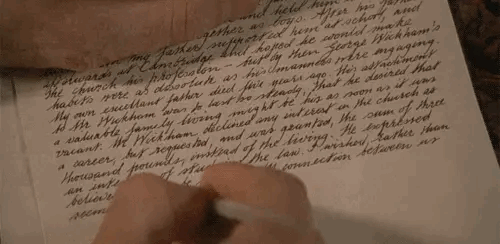 and held him
gether as boys. After his father
my father supported him at school, and
afterwards at Cambridge and hoped he would make
the church his profession - but by then George Wickham's
habits were as dissolute as his manners were engaging.
My own excellent father died five years ago. His attachment
to Mr Wickham was to last so steady, that he desired that
a valuable family living might be his as soon as it was
vacant. Mr Wickham declined any interest in the church as
a career, but requested, and was granted, the sum of three
thousand pounds, instead of the living. He expressed
an inte of stu the law. I wished, rather than
believe connection between us
seem